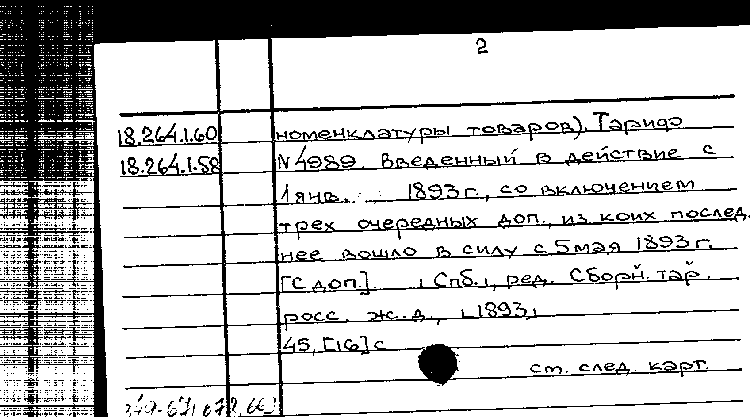 2
18.264.1.60 номенклатуры товаров). Тариф
18.264.1.58 N 4989. Введенный в действие с
1 янв. 1893 г., со включением
трех очередных доп., из коих послед.
нее вошло в силу с 5 мая 1893 г.
[С доп.] Спб., ред. Сборн. тар.
росс. ж. д., 1893,
45, [16] с
ст. след. карт.